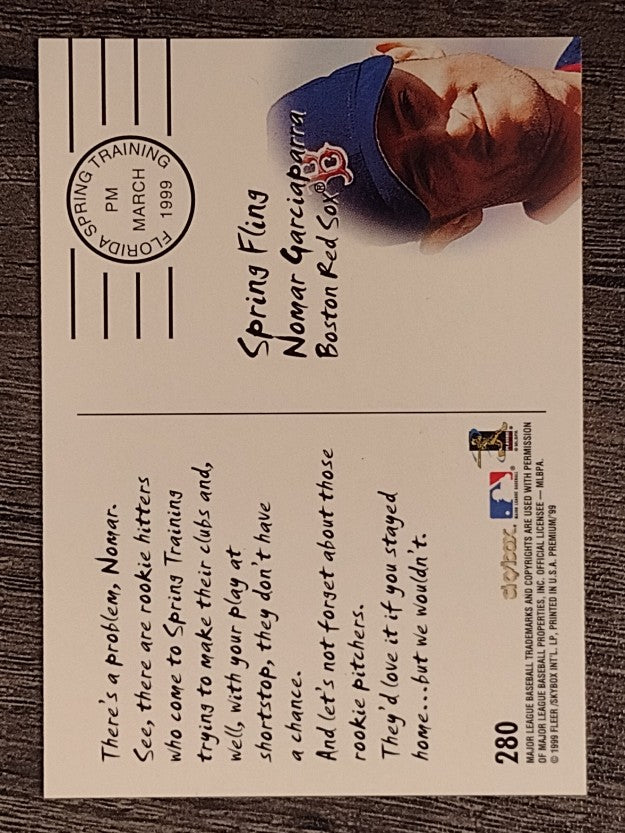 There's a problem, Nomar.
See, there are rookie hitters
who come to Spring Training
trying to make their clubs and,
well, with your play at
shortstop, they don't have
a chance.
And let's not forget about those
rookie pitchers.
They'd love it if you stayed
home...but we wouldn't.
280
skybox
MAJOR LEAGUE BASEBALL TRADEMARKS AND COPYRIGHTS ARE USED WITH PERMISSION
OF MAJOR LEAGUE BASEBALL PROPERTIES, INC. OFFICIAL LICENSEE — MLBPA.
© 1999 FLEER /SKYBOX INT'L. LP, PRINTED IN U.S.A. PREMIUM/'99
FLORIDA SPRING TRAINING
PM
MARCH
1999
Spring Fling
Nomar Garciaparra
Boston Red Sox®
B